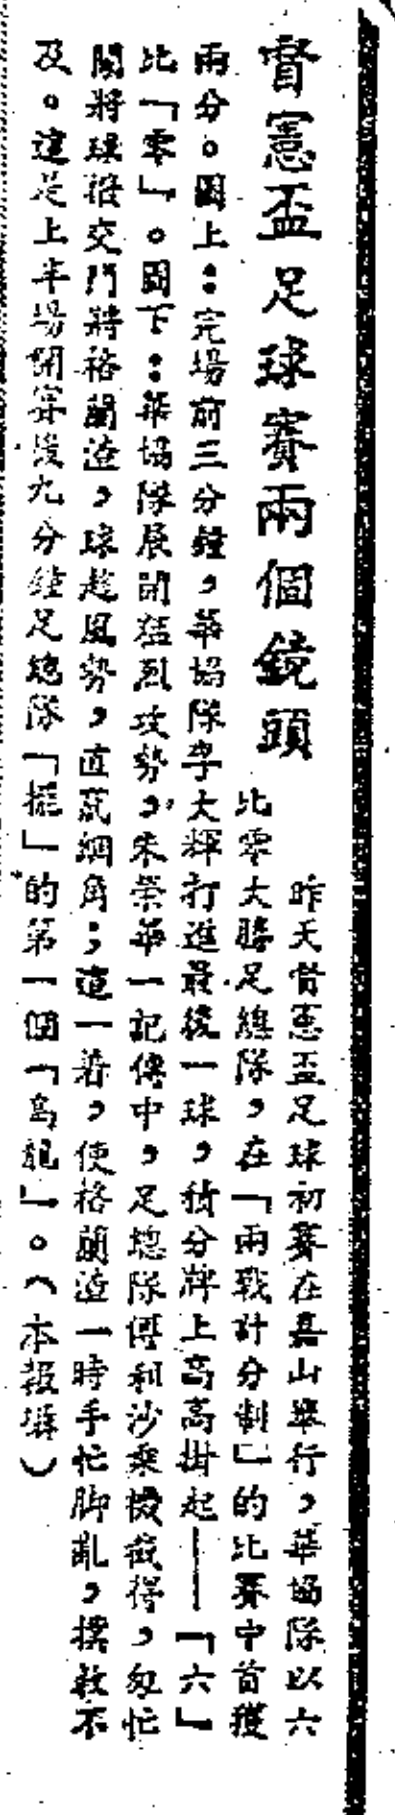 督憲盃足球賽兩個鏡頭
昨天督憲盃足球初賽在嘉山舉行，華協隊以六
比零大勝足總隊，在「兩戰計分制」的比賽中首獲
兩分。圖上：完場前三分鐘，華協隊李大輝打進最後一球，積分牌上高高掛起——「六」
比「零」。圖下：華協隊展開猛烈攻勢，朱榮華一記傳中，足總隊傅利沙乘機截得，匆忙
間將球撥交門將格蘭渣，球趁風勢，直竄網角；這一着，使格蘭渣一時手忙脚亂，撲救不
及。這是上半場開賽後九分鐘足總隊「擺」的第一個「烏龍」。（本報攝）